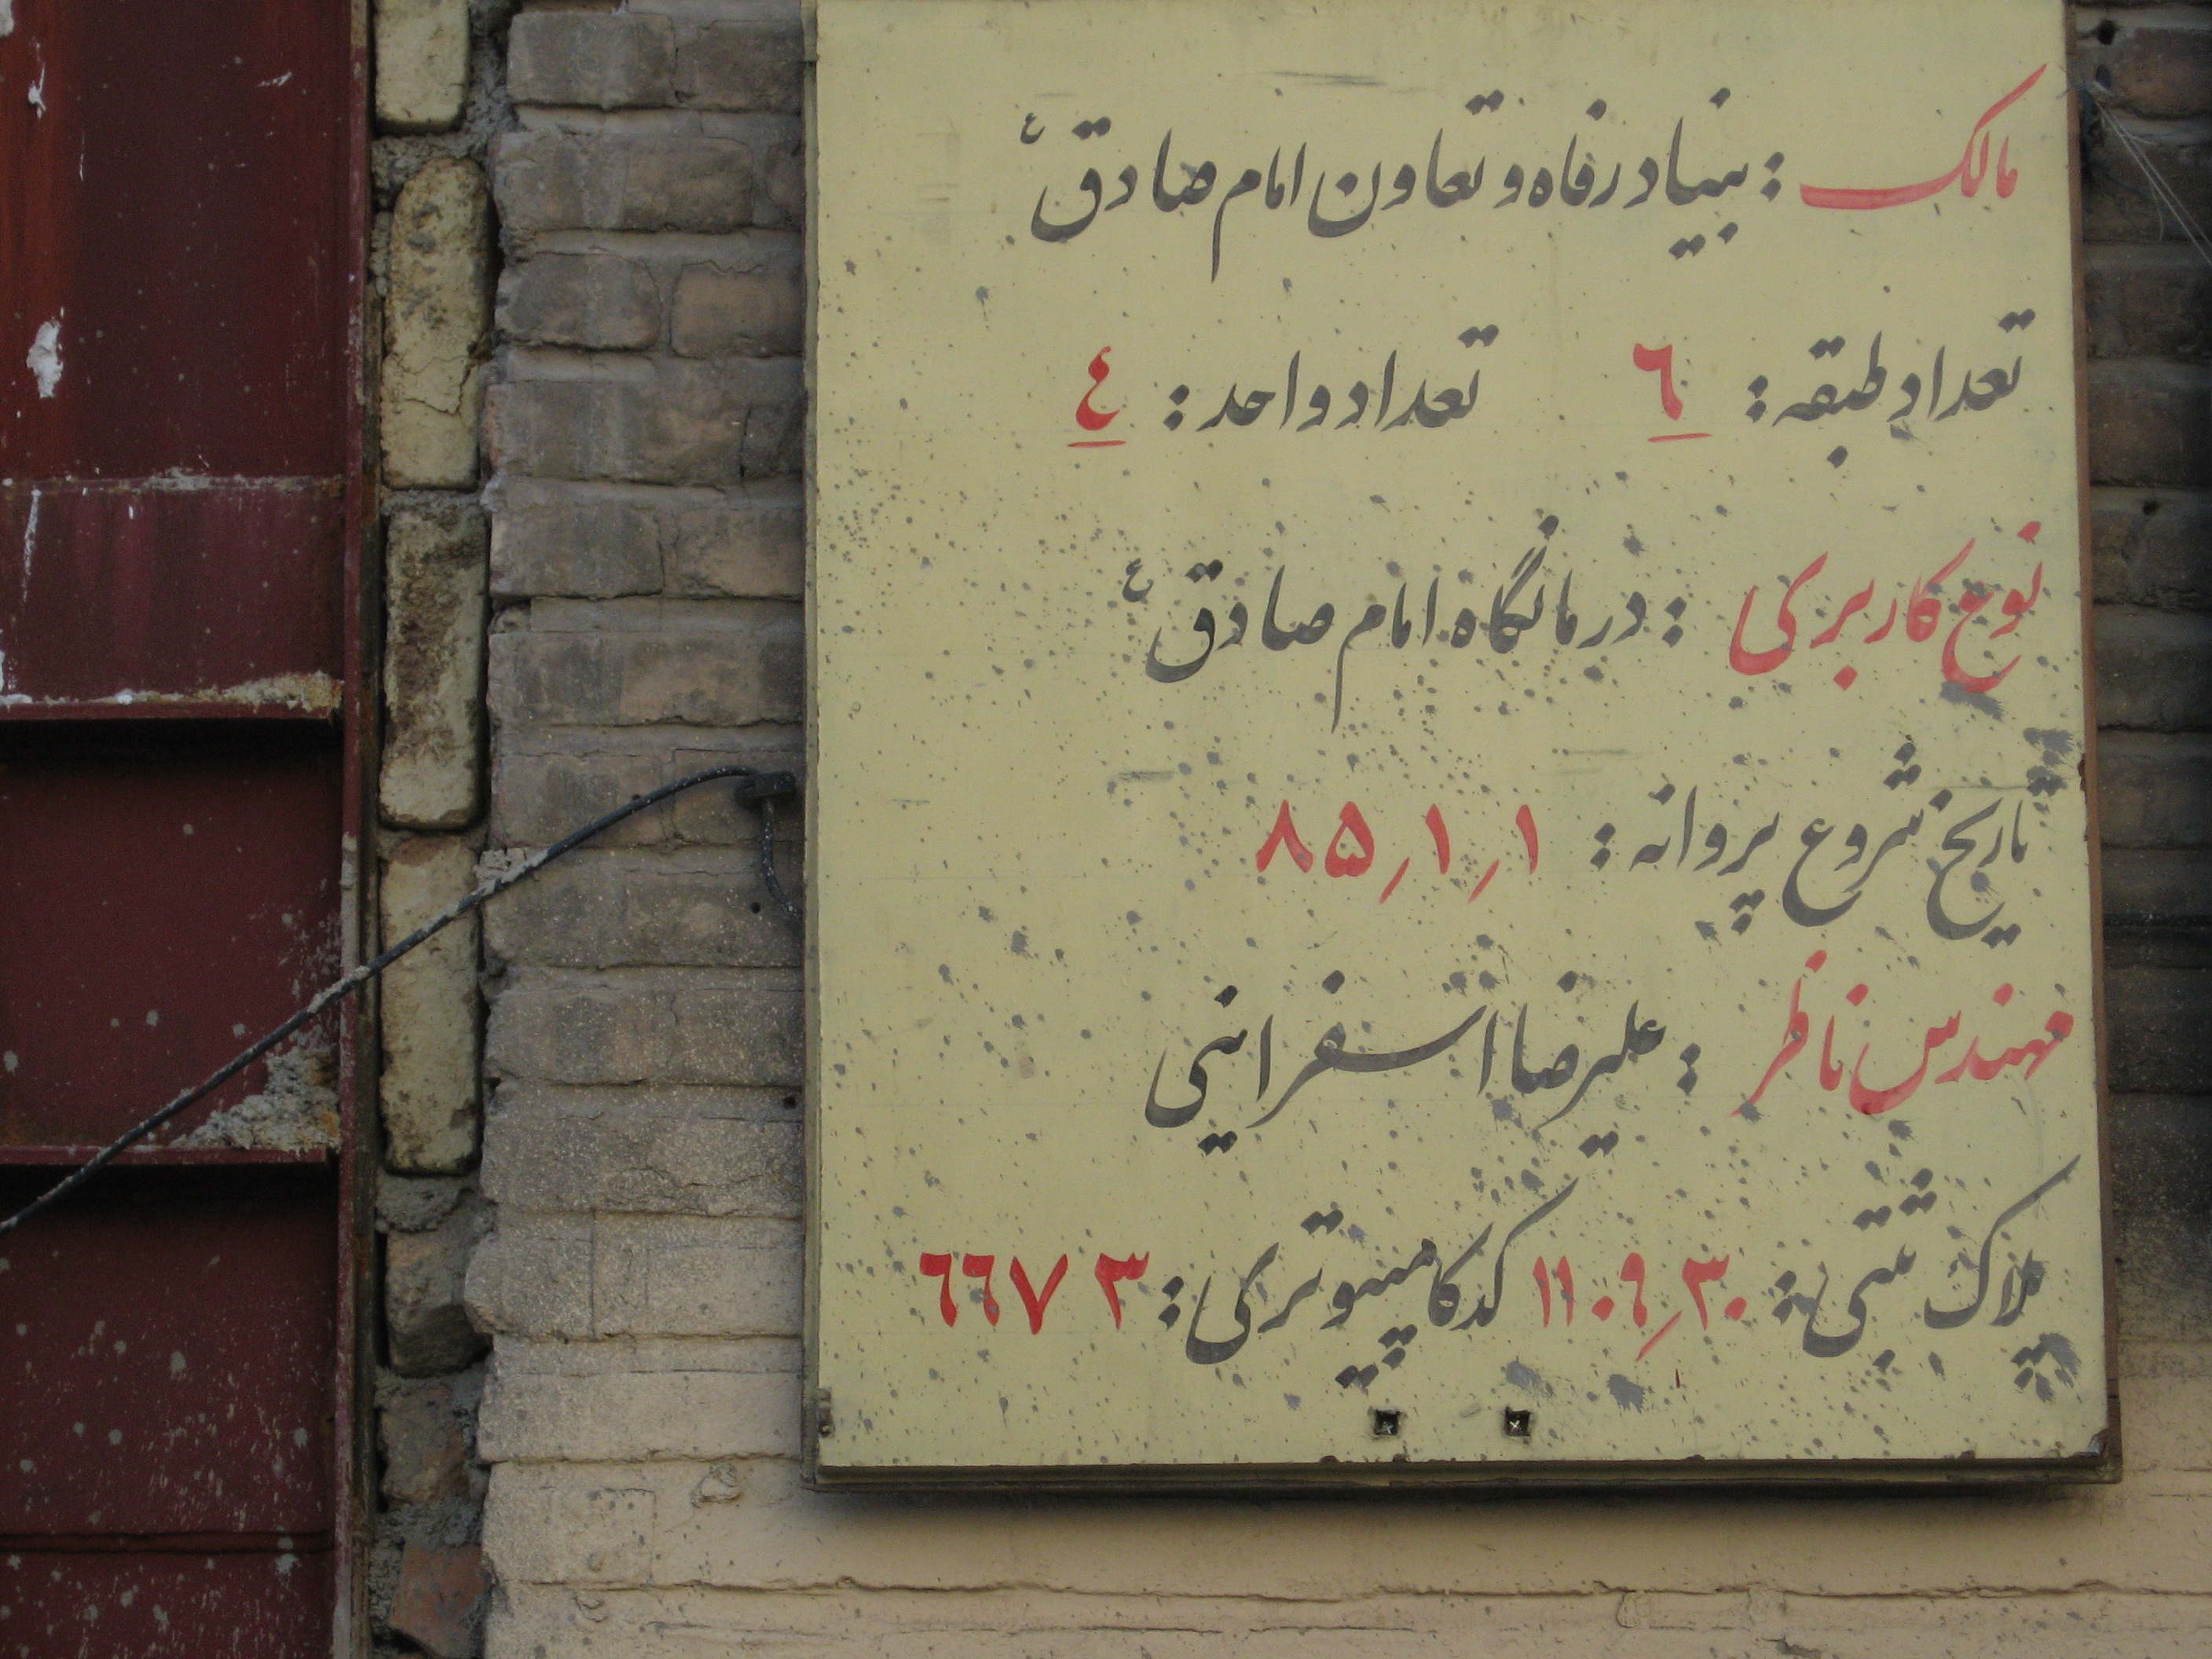 مالک : بنیاد رفاه و تعاون امام صادق ع
تعداد طبقه : ٦ تعداد واحد : ٤
نوع کاربری : درمانگاه امام صادق ع
تاریخ شروع پروانه : ۸۵/۱/۱
مهندس ناظر : علیرضا اسفراینی
پلاک ثبتی : ۱۱۰۹/۳۰ کد کامپیوتری : ٦٦۷۳